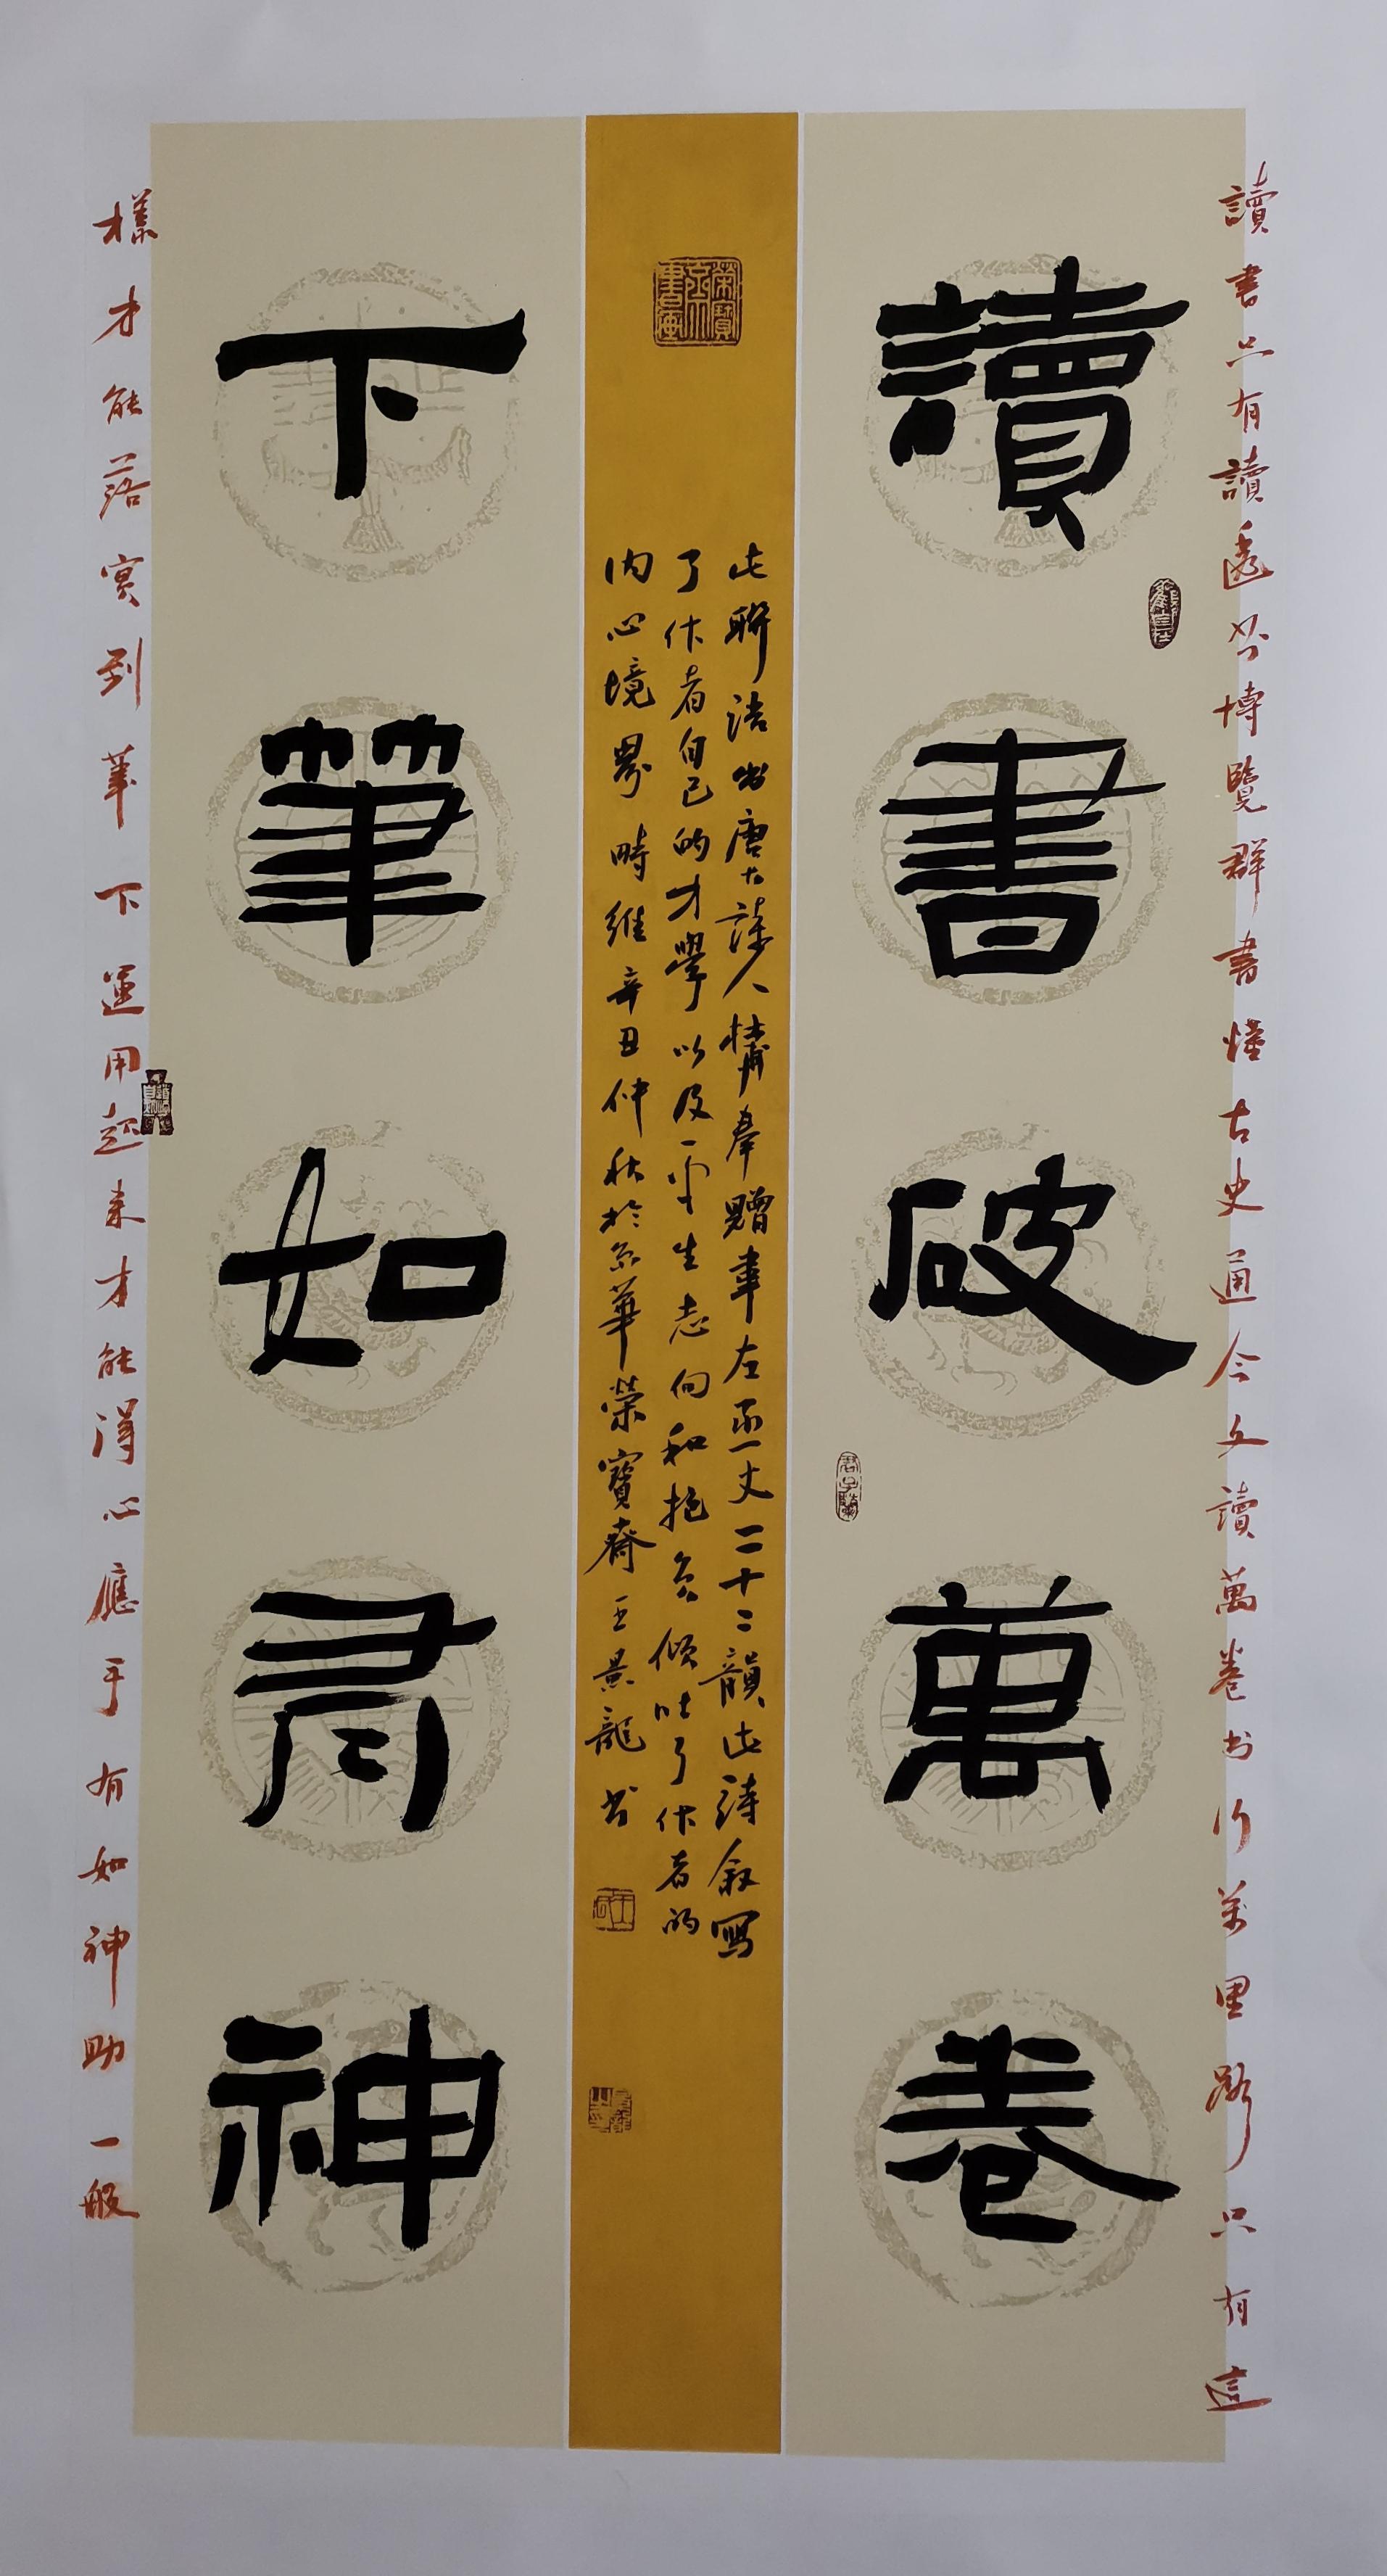 讀書只有讀透书博覽群書懂古史通今文讀萬卷书行万里路只有這
讀書破萬卷
此聯语出唐大詩人杜甫奉贈韋左丞丈二十二韻此詩叙寫
了作者自己的才學以及一平生志向和抱负傾吐了作者的
内心境界時維辛丑仲秋於京華榮寶齋王景龍书
下筆如有神
樣才能落实到筆下運用起来才能得心應手有如神助一般